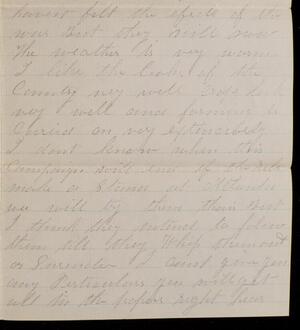 havent felt the effects of the
war but they will now
The weather is very warm
I like the looks of the
Country very well Crops look
very well and farming is
Carried on very extensively
I dont know when this
Campaign will end if the rebs
make a stand at Atlanta
we will by them there but
I think they intend to follow
them till they Whip them out
or Surrender I cant give you
any Particulars you will get
all in the papers right